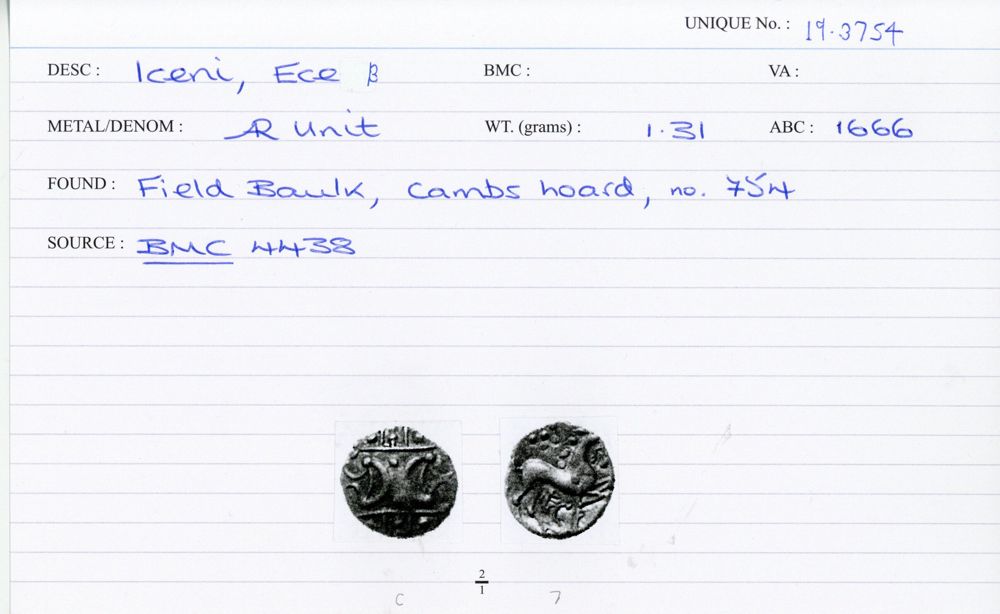 UNIQUE No. : 19.3754
DESC : Iceni, Ece β BMC : VA :
METAL/DENOM : AR Unit WT. (grams) : 1.31 ABC : 1666
FOUND : Field Baulk, Cambs hoard, no. 754
SOURCE : BMC 4438
2/1
C 7